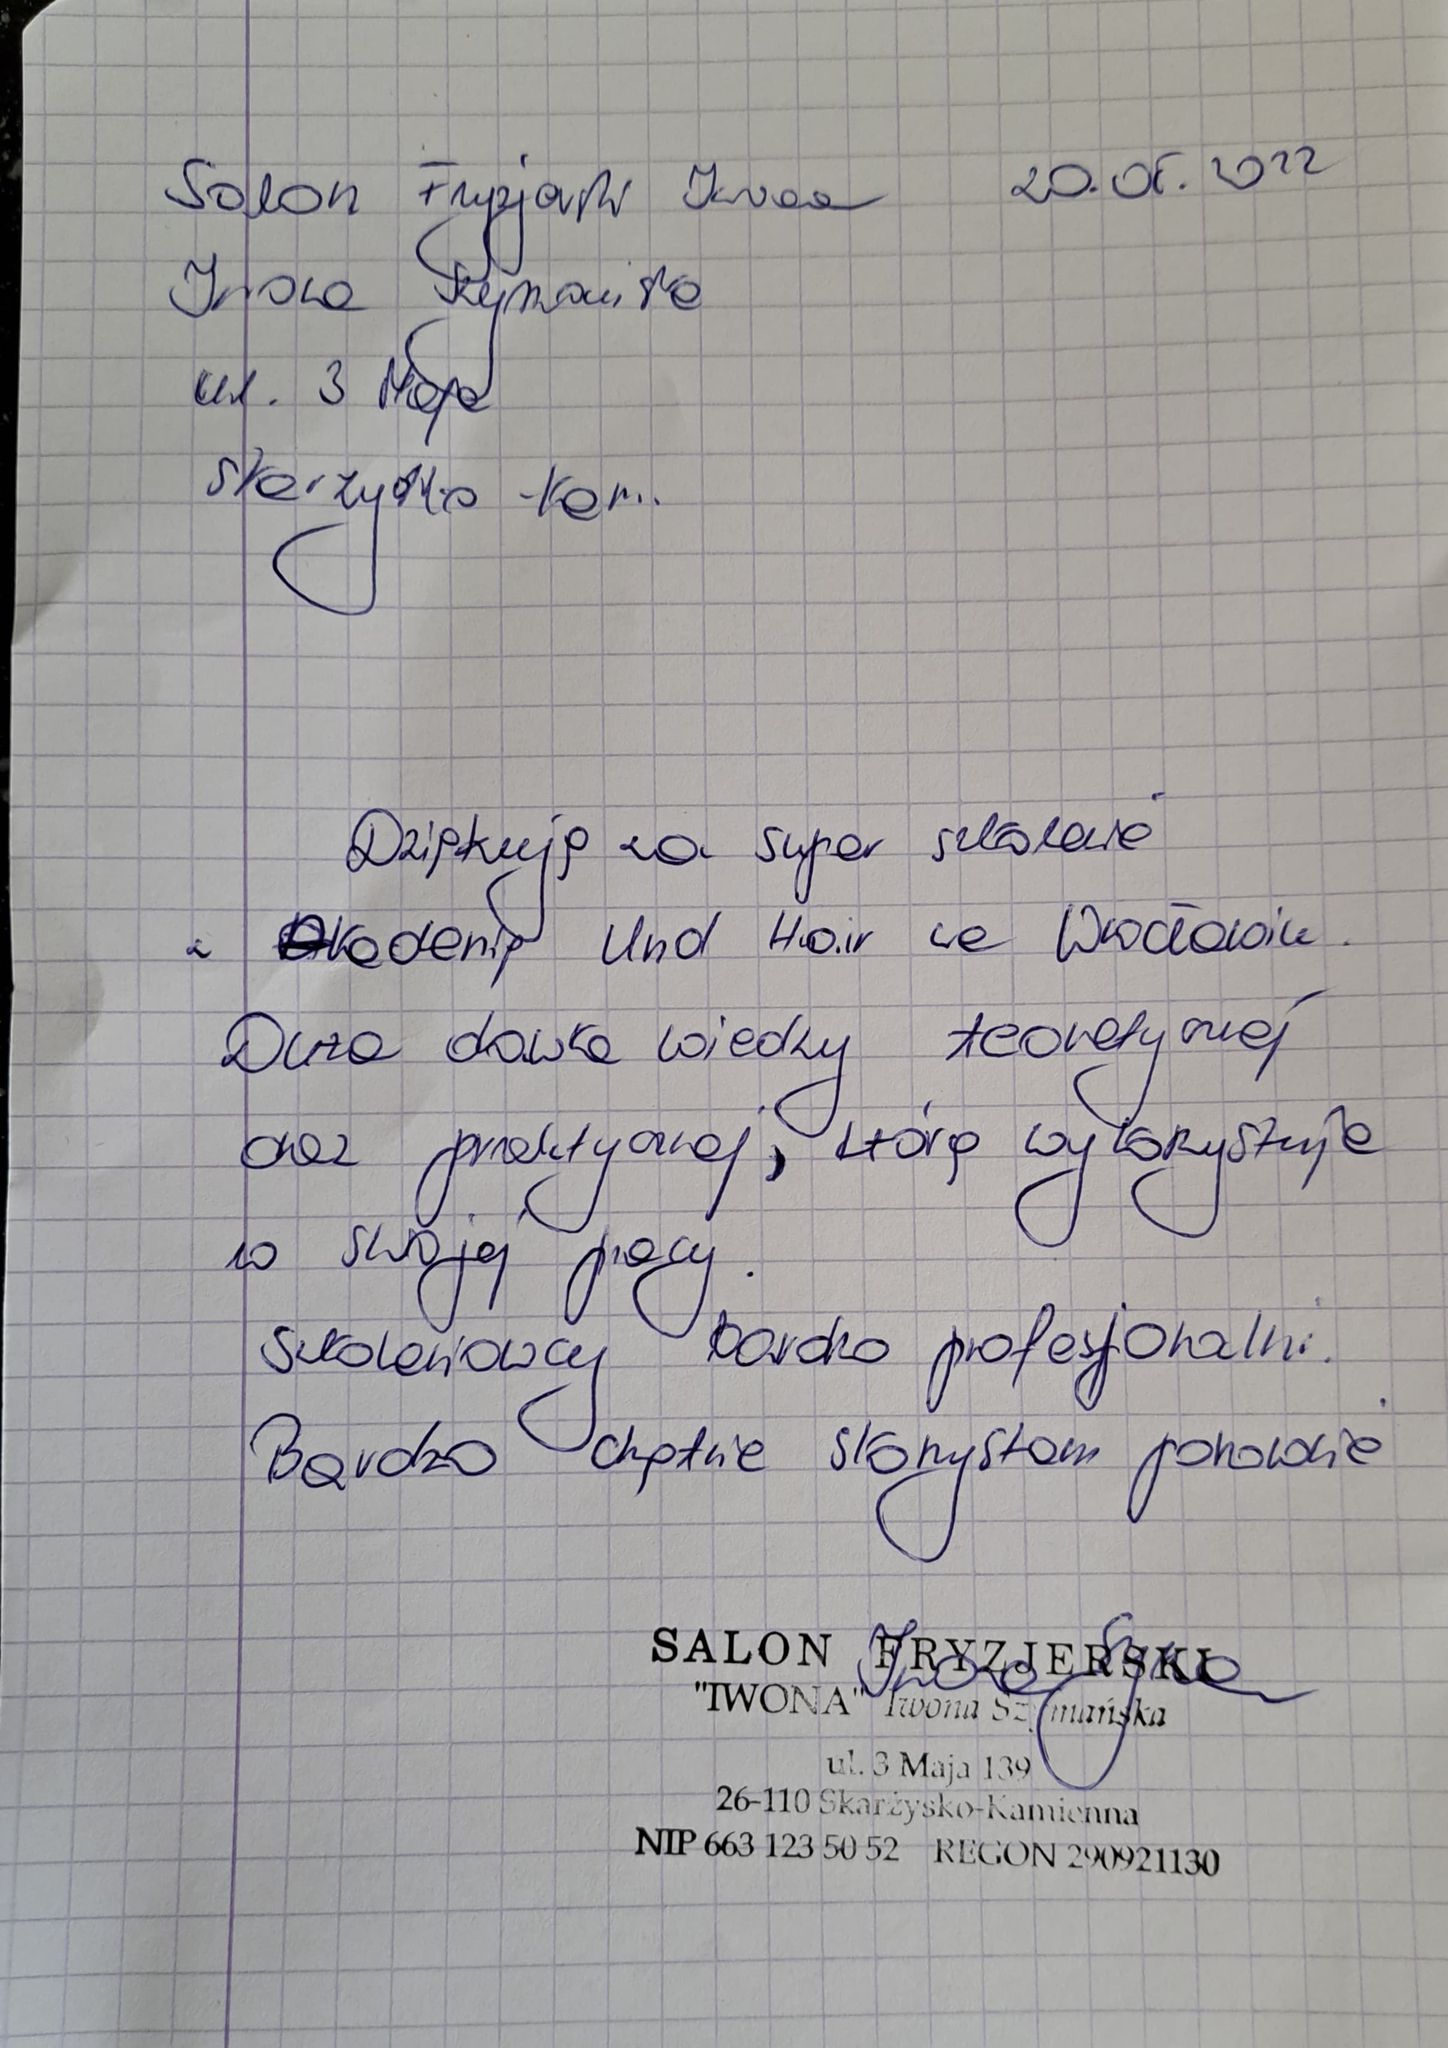 Salon Fryzjerski Iwona 20.05.2022
Iwona Szymańska
ul. 3 Maja
Skarżysko-Kam.
Dziękuję za super szkolenie
z Akademię Und Hair we Wrocławiu.
Duża dawka wiedzy teoretycznej
oraz praktycznej, którą wykorzystuję
w swojej pracy.
Szkoleniowcy bardzo profesjonalni.
Bardzo chętnie skorzystam ponownie
SALON FRYZJERSKI
"IWONA" Iwona Szymańska
ul. 3 Maja 139
26-110 Skarżysko-Kamienna
NIP 663 123 50 52 REGON 290921130